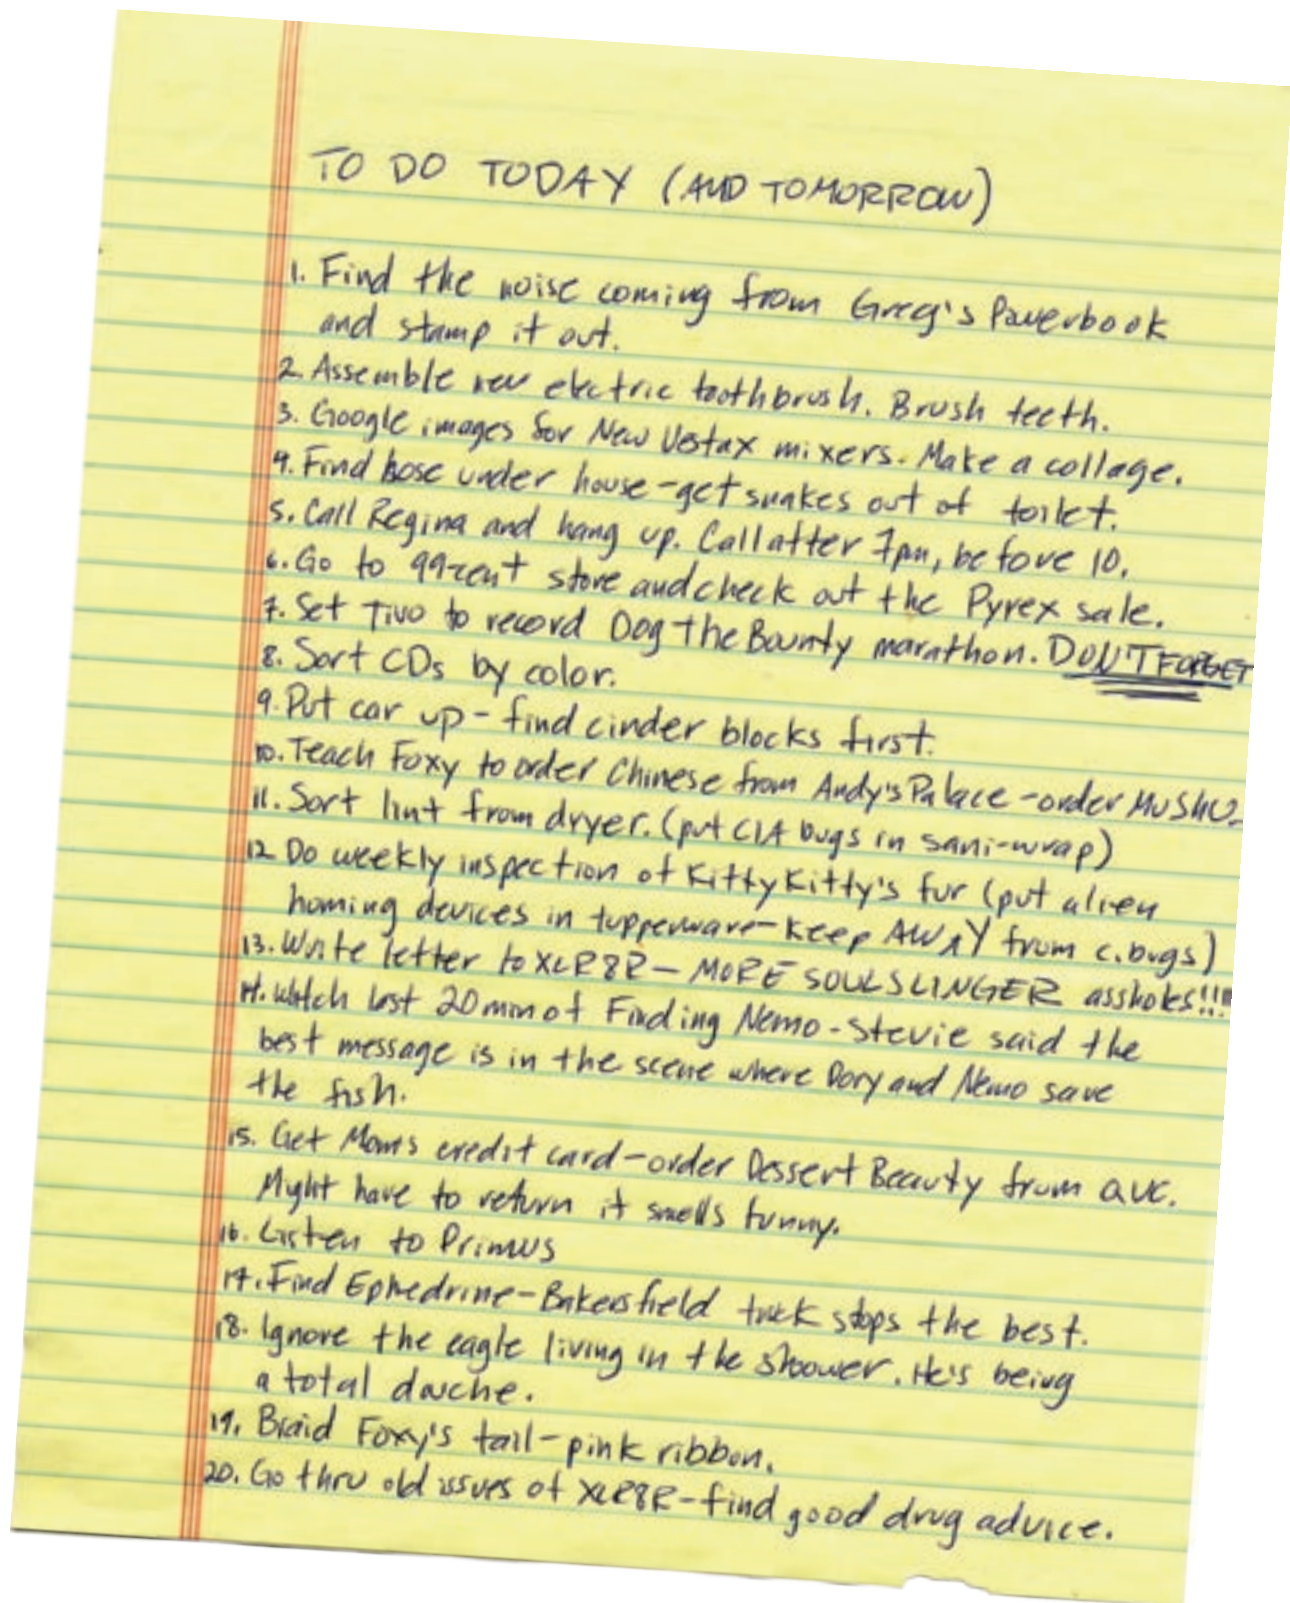 TO DO TODAY (AND TOMORROW)
1. Find the noise coming from Greg's Powerbook
and stamp it out.
2. Assemble new electric toothbrush. Brush teeth.
3. Google images for New Vestax mixers. Make a collage.
4. Find hose under house - get snakes out of toilet.
5. Call Regina and hang up. Call after 7pm, before 10.
6. Go to 99-cent store and check out the Pyrex sale.
7. Set Tivo to record Dog the Bounty marathon. DON'T FORGET
8. Sort CDs by color.
9. Put car up - find cinder blocks first.
10. Teach Foxy to order Chinese from Andy's Palace - order MUSHU.
11. Sort lint from dryer. (put CIA bugs in sani-wrap)
12. Do weekly inspection of Kitty Kitty's fur (put alien
homing devices in tupperware - keep AWAY from c. bugs)
13. Write letter to XLR8R - MORE SOULSLINGER assholes!!!!
14. Watch last 20 min of Finding Nemo - Stevie said the
best message is in the scene where Dory and Nemo save
the fish.
15. Get Mom's credit card - order Dessert Beauty from QVC.
Might have to return it smells funny.
16. Listen to Primus
17. Find Ephedrine - Bakersfield truck stops the best.
18. Ignore the eagle living in the shower. He's being
a total douche.
19. Braid Foxy's tail - pink ribbon.
20. Go thru old issues of XLR8R - find good drug advice.